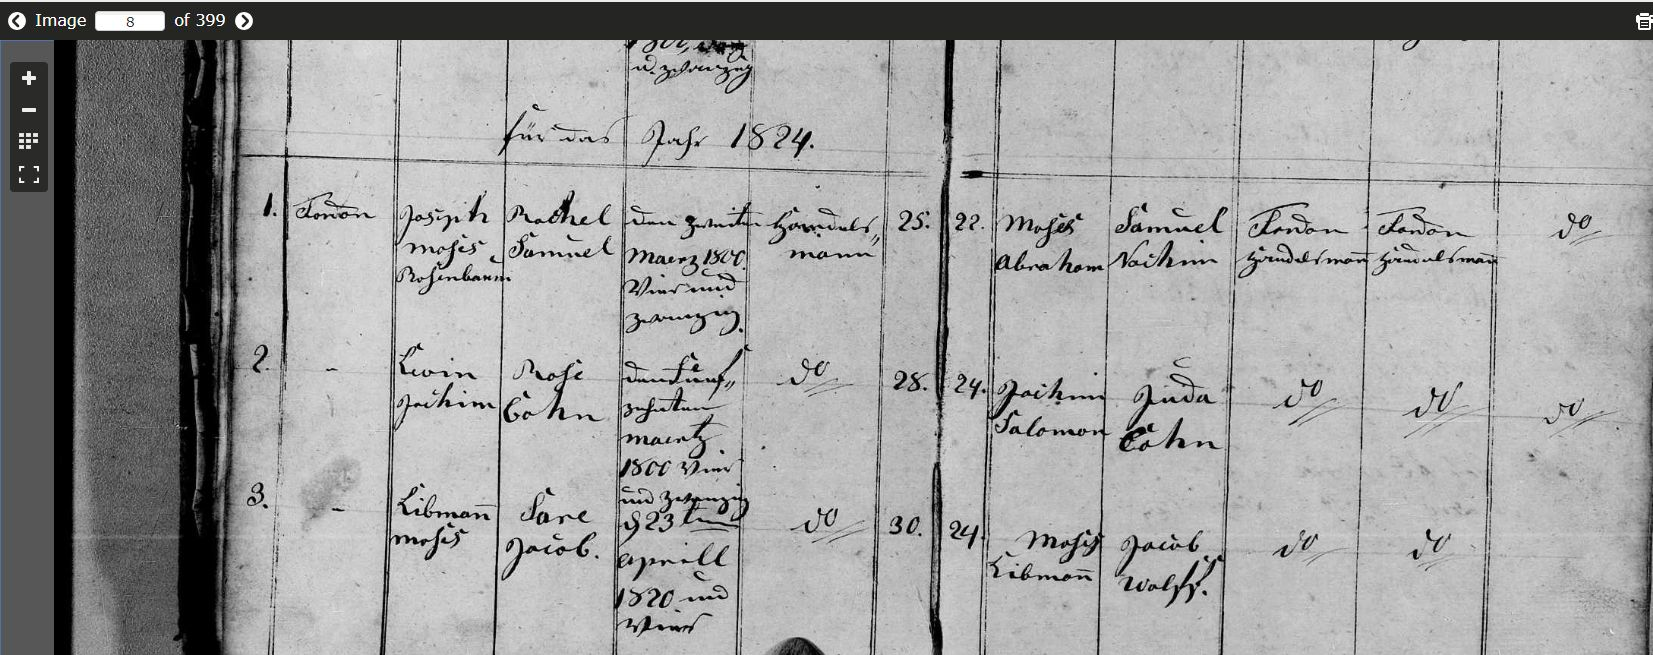 Image 8 of 399
u. zwanzig
für das Jahr 1824.
1.
Fordon
Joseph
Moses
Rosenbaum
Rachel
Samuel
den zweiten
Maerz 1800.
Vier und
zwanzig.
Handels„
mann
25.
22.
Moses
Abraham
Samuel
Nochim
Fordon
Handelsmann
Fordon
Handelsmann
do
2.
Lewin
Jochim
Rose
Cohn
den Fünf„
zehnten
Maertz
1800 Vier
und zwanzig
do
28.
24.
Jochim
Salomon
Juda
Cohn
do
do
do
3.
Libmann
Moses
Sare
Jacob.
d 23 ten
Aprill
1820 und
Vier
do
30.
24.
Moses
Libmann
Jacob
Wolff.
do
do